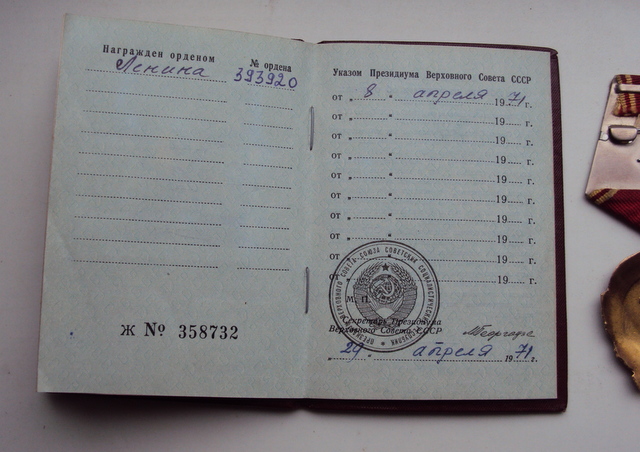 Награжден орденом
№ ордена
Ленина 393920
Ж № 358732
Указом Президиума Верховного Совета СССР
от „ 8 “ апреля 1971 г.
от „ “ 19 г.
от „ “ 19 г.
от „ “ 19 г.
от „ “ 19 г.
от „ “ 19 г.
от „ “ 19 г.
от „ “ 19 г.
от „ “ 19 г.
от „ “ 19 г.
М. П.
Секретарь Президиума
Верховного Совета СССР
29 апреля 1971 г.